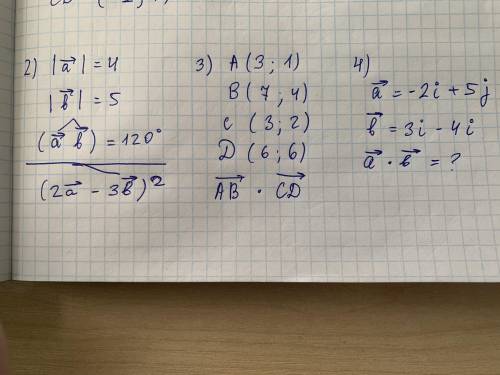 2) |a⃗| = 4
|b⃗| = 5
(a⃗ b⃗) = 120°
(2a⃗ - 3b⃗)²
3) A (3; 1)
B (7; 4)
C (3; 2)
D (6; 6)
AB⃗ · CD⃗
4)
a⃗ = -2i + 5j
b⃗ = 3i - 4i
a⃗ · b⃗ = ?